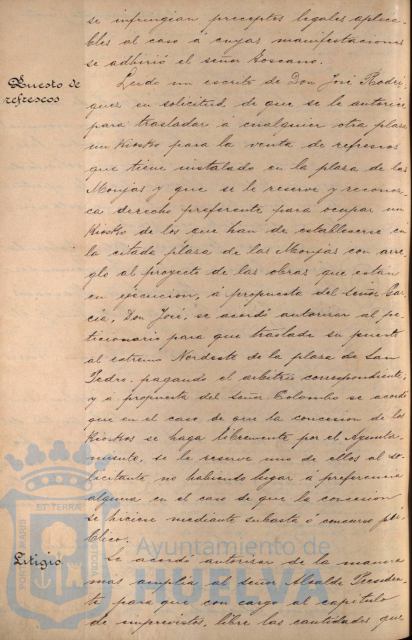 se infringian preceptos legales aplica-
bles al caso á cuyas manifestaciones
se adhirió el señor Toscano.
Puesto de
refrescos
Leido un escrito de Don José Rodri-
guez en solicitud de que se le autorice
para trasladar á cualquier otra plaza
un Kiosko para la venta de refrescos
que tiene instalado en la plaza de las
Monjas y que se le reserve y reconoz-
ca derecho preferente para ocupar un
Kiosko de los que han de establecerse en
la citada plaza de las Monjas con arre-
glo al proyecto de las obras que están
en ejecucion, á propuesta del señor Gar-
cia, Don José, se acordó autorizar al pe-
ticionario para que traslade su puesto
al extremo Nordeste de la plaza de San
Pedro, pagando el arbitrio correspondiente,
y á propuesta del señor Colombo se acordó
que en el caso de que la concesion de los
Kioskos se haga libremente por el Ayunta-
miento, se le reserve uno de ellos al so-
licitante no habiendo lugar á preferencia
alguna en el caso de que la concesion
se hiciese mediante subasta ó concurso pú-
blico.
Litigio
Se acordó autorizar de la manera
mas amplia al señor Alcalde Presiden-
te para que con cargo al capitulo
de imprevistos, libre las cantidades que
PORTUS MARIS
ET TERRÆ
CUSTODIA
Ayuntamiento de
HUELVA